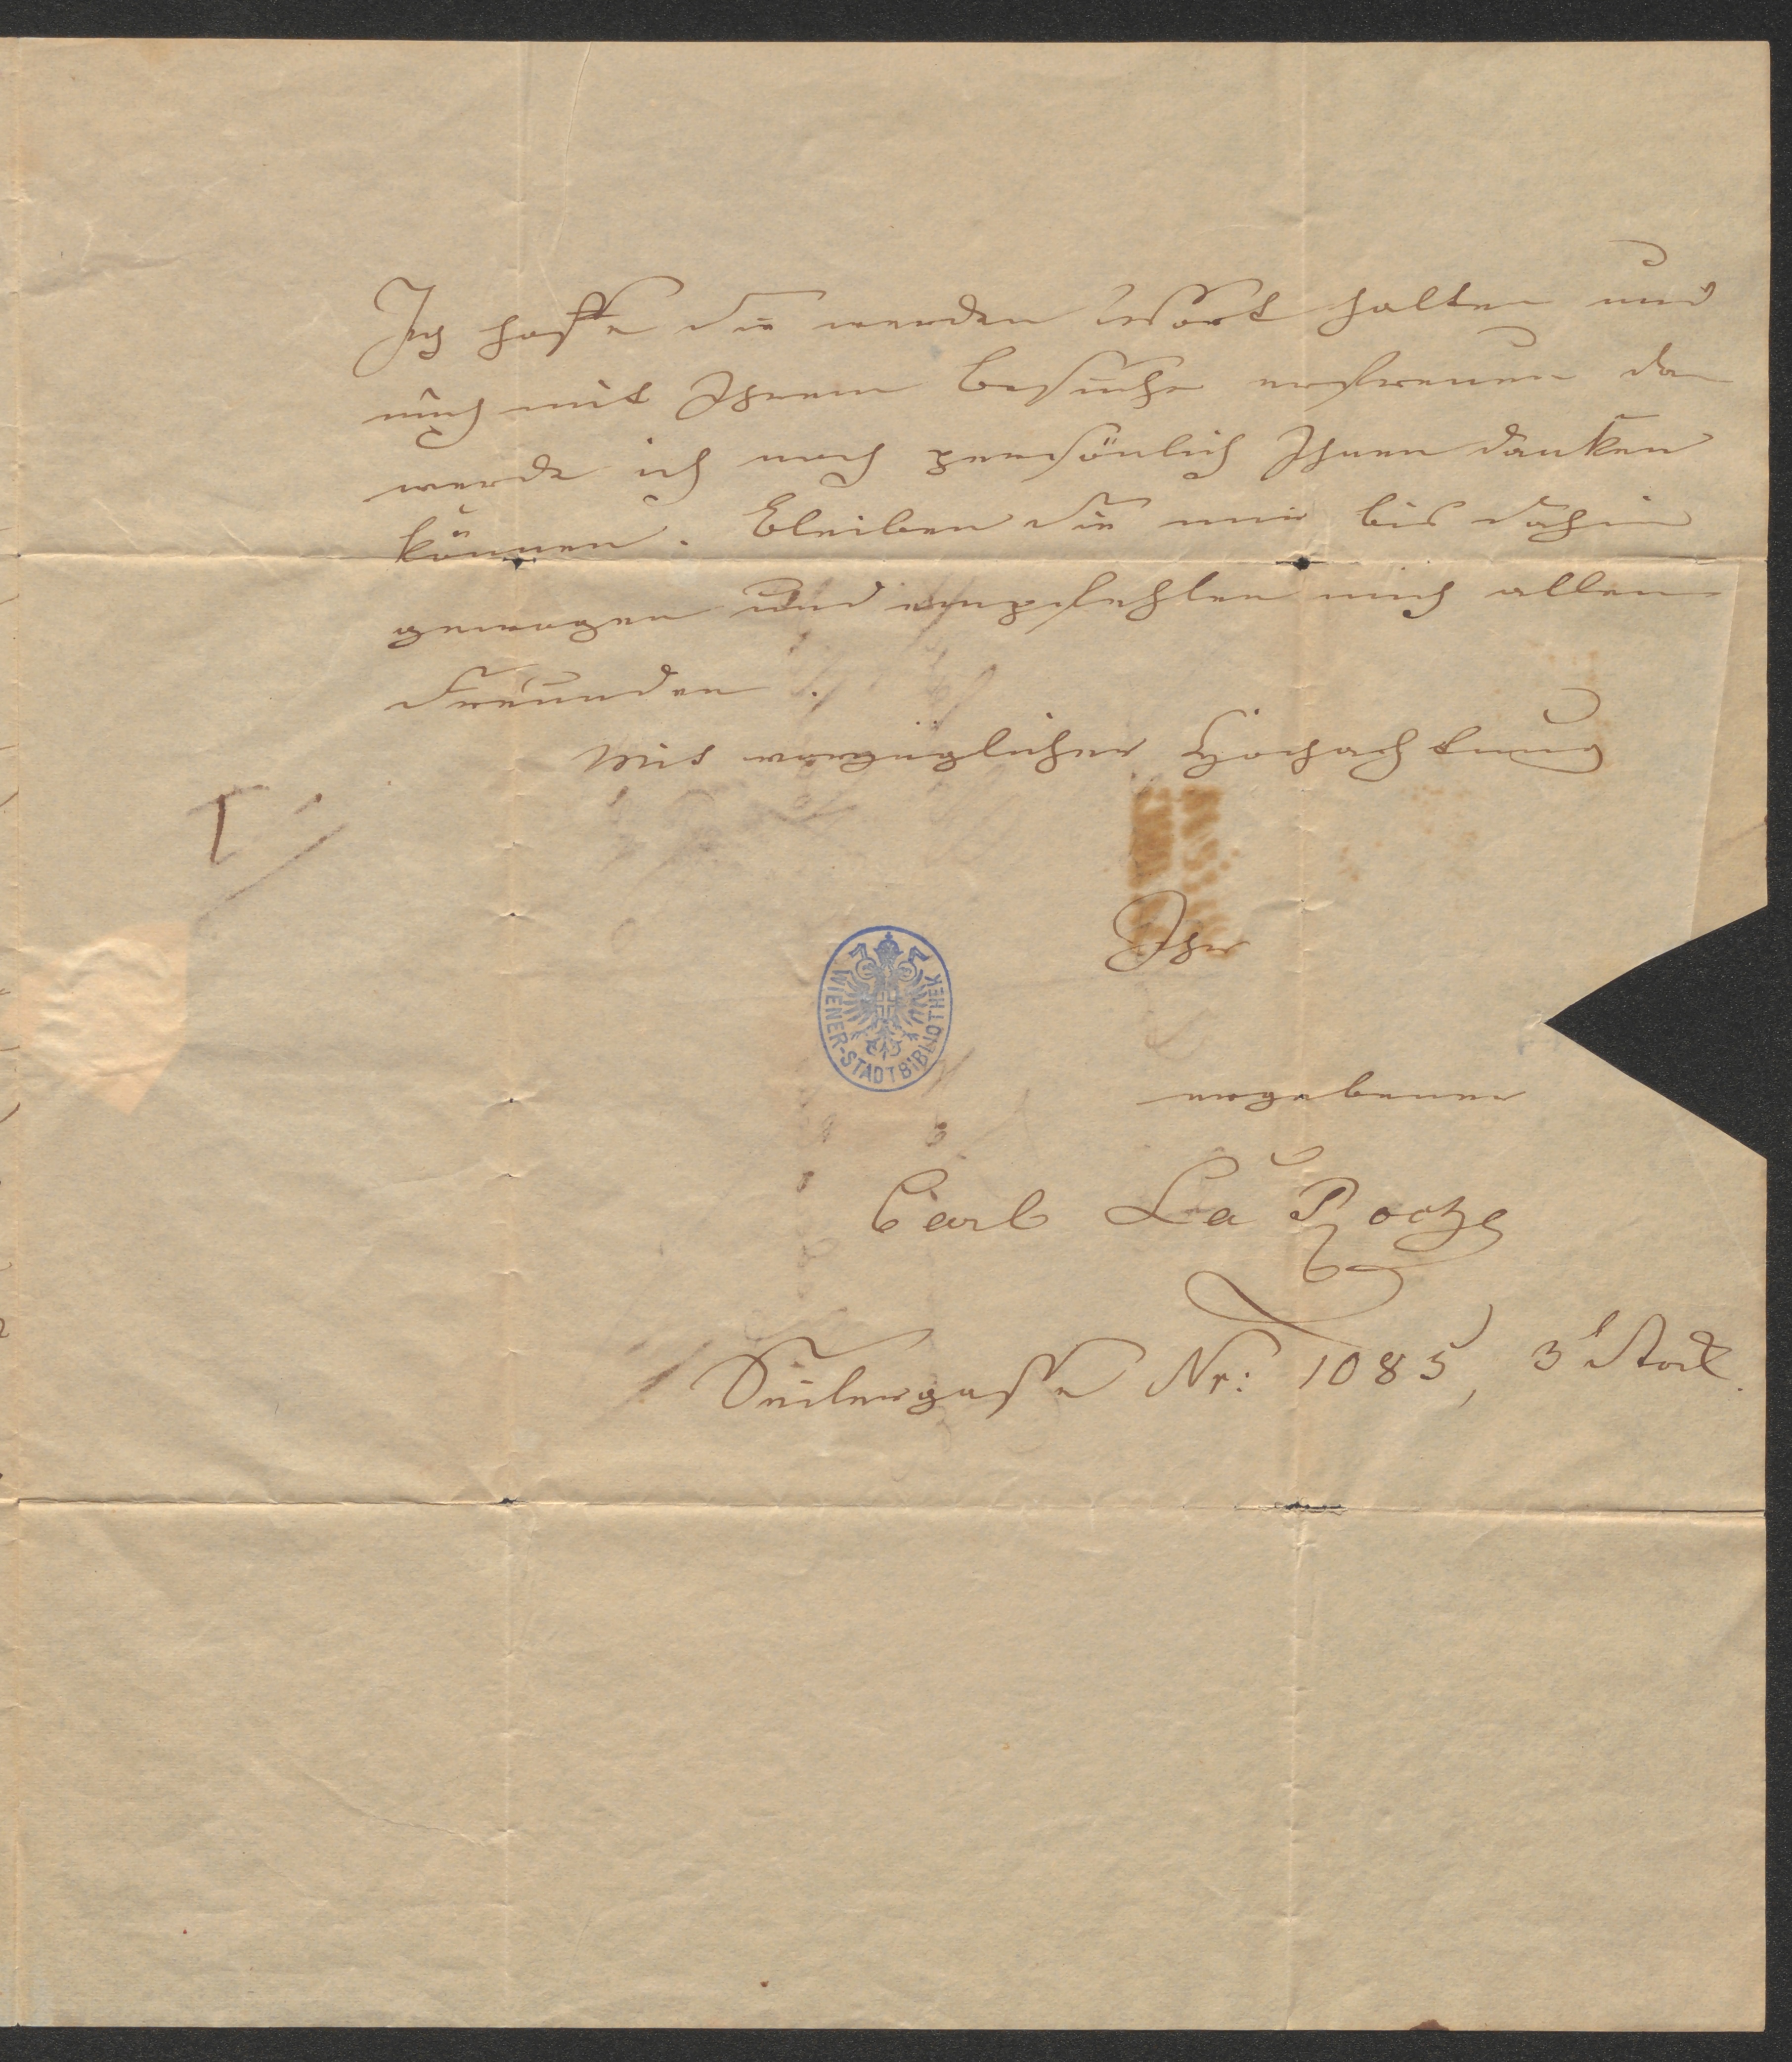 Ich hoffe Sie werden Wort halten und
mich mit Ihrem Besuche erfreuen da
werde ich noch persönlich Ihnen danken
können. Bleiben Sie mir bis dahin
gewogen und empfehlen mich allen
Freunden.
Mit vorzüglicher Hochachtung
Ihr
WIENER-STADTBIBLIOTHEK
ergebener
Carl La Roche
Seilergasse Nr: 1085, 3t Stock.